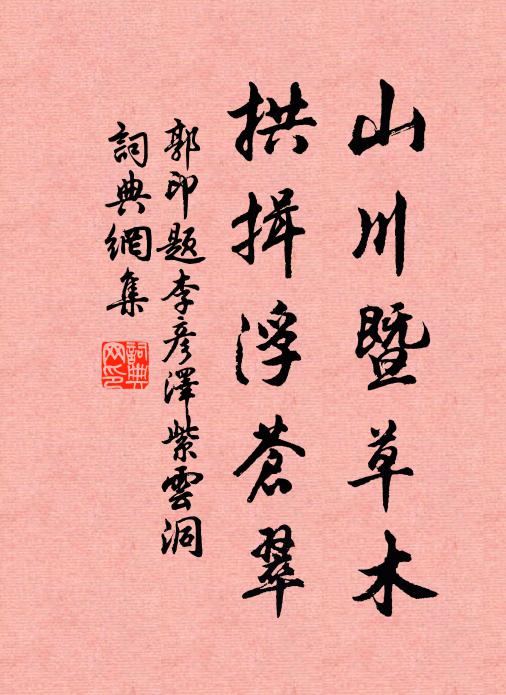 山川暨草木
拱揖浮苍翠
郭印题李彦澤紫雲洞
詞典網集
詞典網印